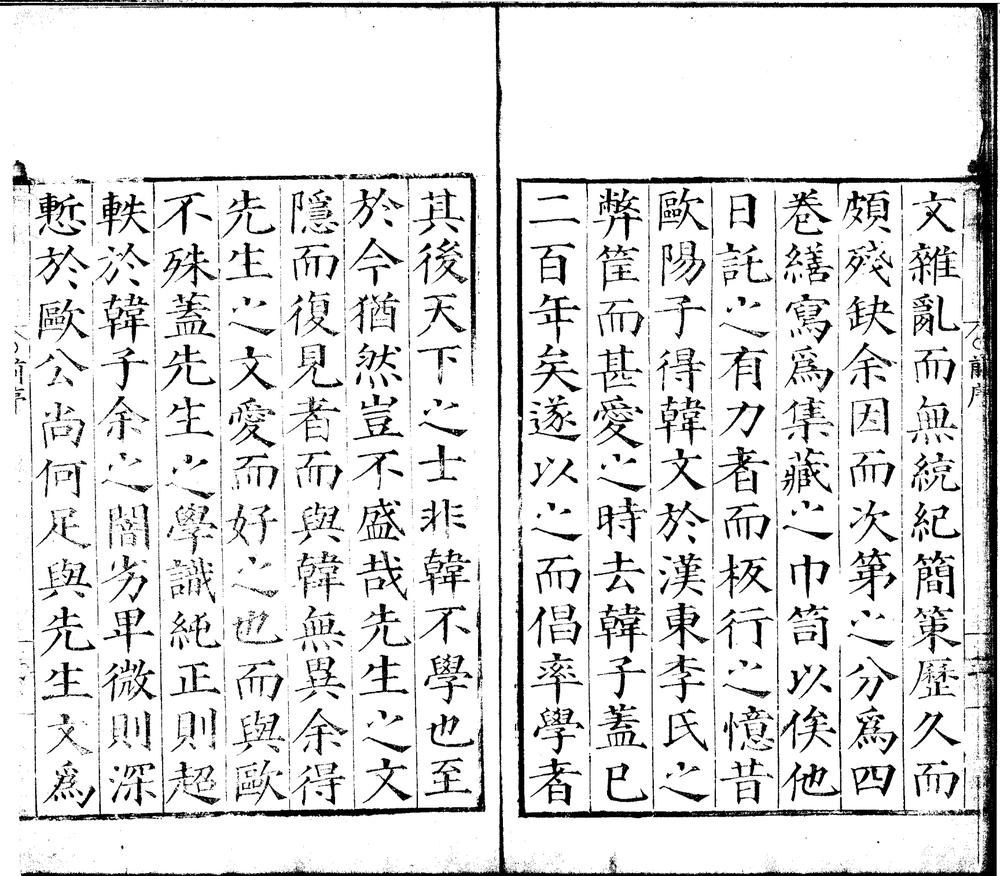 文雜亂而無統紀簡策歷久而
頗殘缺余因而次第之分爲四
卷繕寫爲集藏之巾笥以俟他
日託之有力者而板行之憶昔
歐陽子得韓文於漢東李氏之
弊筐而甚愛之時去韓子蓋已
二百年矣遂以之而倡率學者
其後天下之士非韓不學也至
於今猶然豈不盛哉先生之文
隱而復見者而與韓無異余得
先生之文愛而好之也而與歐
不殊蓋先生之學識純正則超
軼於韓子余之闇劣卑微則深
慙於歐公尚何足與先生文爲
前序